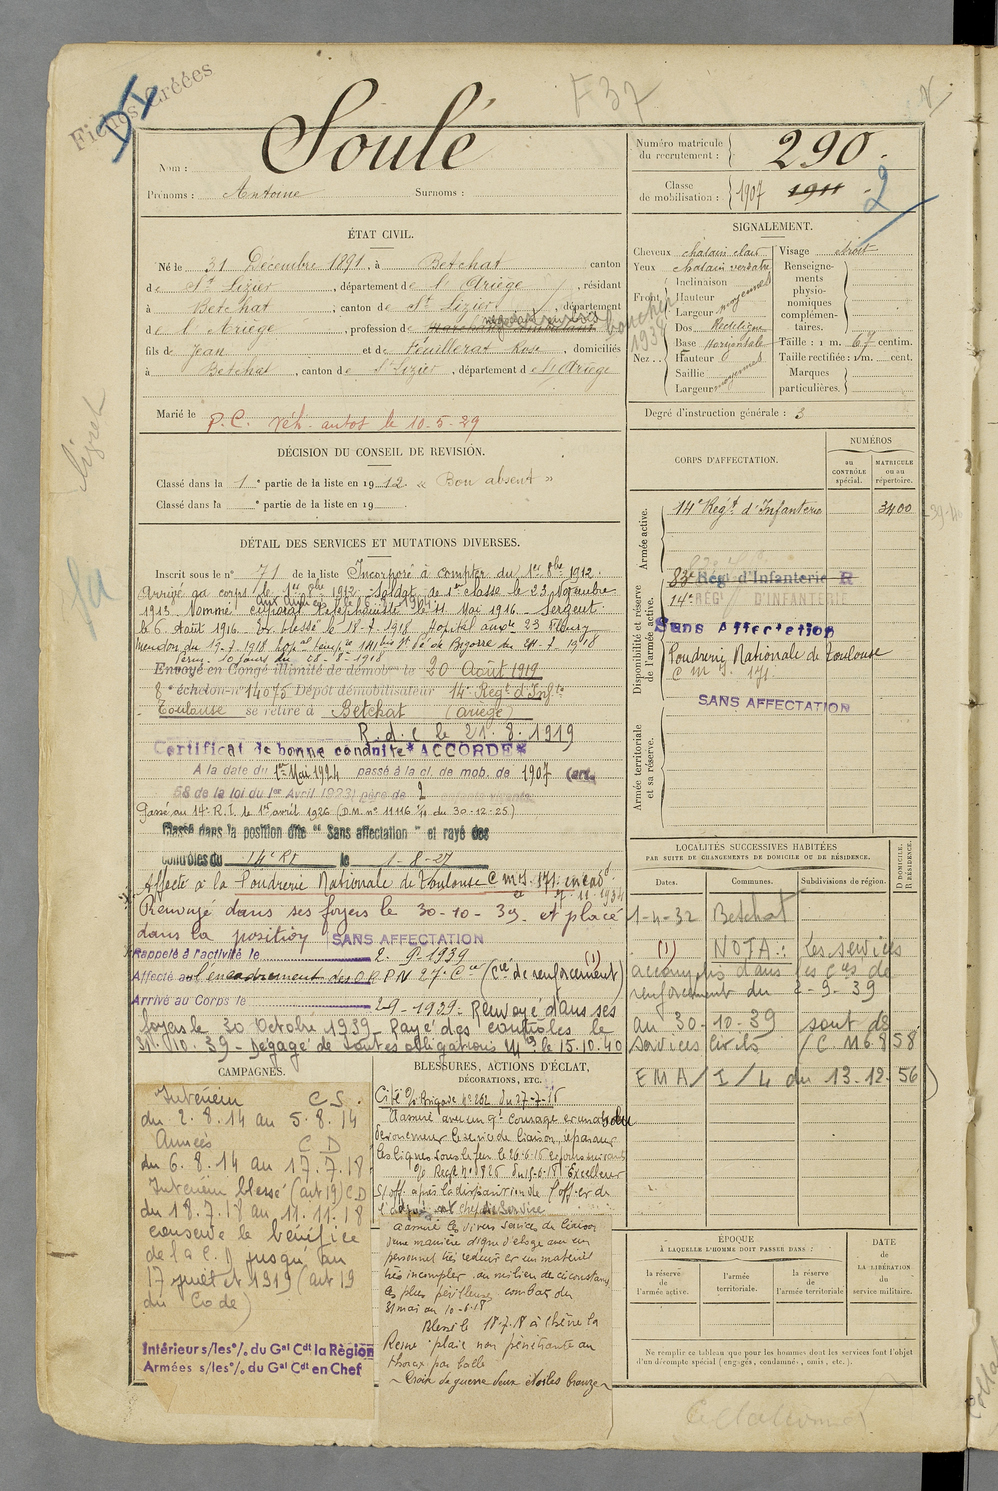 Fiches Créées
DY
F 37
Nom : Soulé
Prénoms : Antoine Surnoms :
Numéro matricule du recrutement : 290
Classe de mobilisation : 1907 1911 2
ÉTAT CIVIL.
Né le 31 Décembre 1891, à Betchat canton
de St Lizier, département de l'Ariège, résidant
à Betchat, canton de St Lizier, département
de l'Ariège, profession de boucher 1939
fils de Jean et de Feuillerat Rose, domiciliés
à Betchat, canton de St Lizier, département de l'Ariège
Marié le P.C. Véh. autos le 10-5-29
SIGNALEMENT.
Cheveux châtain clair
Yeux châtain verdâtre
Front Inclinaison
Hauteur
Largeur moyennes
Nez Dos Rectiligne
Base Horizontale
Hauteur
Saillie
Largeur moyennes
Visage étroit
Renseignements physionomiques complémentaires.
Taille : 1 m. 67 centim.
Taille rectifiée : 1 m. cent.
Marques particulières.
Degré d'instruction générale : 3
DÉCISION DU CONSEIL DE REVISION.
Classé dans la 1e partie de la liste en 1912. « Bon absent »
Classé dans la e partie de la liste en 19
DÉTAIL DES SERVICES ET MUTATIONS DIVERSES.
Inscrit sous le n° 71 de la liste Incorporé à compter du 1er 8bre 1912.
Arrivé au corps le 1er 8bre 1912. Soldat de 1re classe le 23 Novembre
1913. Nommé caporal le 11 Mai 1916. Sergent
le 6 Août 1916. Ev. blessé le 18-7-1918 Hopital auxre 23 Fleury
Meudon du 19-7-1918
Perm. 10 jours du 28-8-1918
Envoyé en Congé illimité de démobon le 20 Août 1919
8e échelon n° 14075 Dépôt démobilisateur 14e Régt d'Infie
Toulouse se retire à Betchat (Ariège)
R.d.c le 21.8.1919
Certificat de bonne conduite "ACCORDÉ"
A la date du 1er Mai 1924 passé à la cl. de mob. de 1907 (art.
58 de la loi du 1er Avril 1923) père de 2 enfants vivants
Passé au 14e R.I. le 1er avril 1926 (D.M. n° 11116 1/1 du 30-12-25)
Classé dans la position dite "Sans affectation" et rayé des
contrôles du 14e RI le 1-8-27
Affecté à la Poudrerie Nationale de Toulouse C m J. 171.
Renvoyé dans ses foyers le 30-10-39 et placé
dans la position SANS AFFECTATION
Rappelé à l'activité le 2.9.1939
Affecté au l'encadrement des O.P.N 27e Cie (Cie de renforcement) (1)
Arrivé au Corps le 2-9-1939. Renvoyé dans ses
foyers le 30 Octobre 1939. Rayé des contrôles le
31.10.39 - Dégagé de toutes obligations Mres le 15.10.40
CORPS D'AFFECTATION.
NUMÉROS
au CONTRÔLE spécial.
MATRICULE ou au répertoire.
Armée active.
14e Régt d'Infanterie 3400
Disponibilité et réserve de l'armée active.
83e Rég. d'Infanterie R
14e RÉGt D'INFANTERIE
Sans Affectation
Poudrerie Nationale de Toulouse
C m J. 171.
SANS AFFECTATION
Armée territoriale et sa réserve.
LOCALITÉS SUCCESSIVES HABITÉES
PAR SUITE DE CHANGEMENTS DE DOMICILE OU DE RÉSIDENCE.
Dates. Communes. Subdivisions de région. D DOMICILE. R RÉSIDENCE.
1-4-32 Betchat
(1) NOTA : les services
accomplis dans les Cies de
renforcement du 2-9-39
au 30-10-39 sont des
services civils (C M 6858
EMA/1/4 du 13.12.56)
CAMPAGNES.
Intérieur C S.
du 2.8.14 au 5.8.14
Armées C D
du 6.8.14 au 17.7.18
Intérieur blessé (art 19) C D
du 18.7.18 au 11.11.18
conserve le bénéfice
de la C.D jusqu'au
17 juillet 1919 (art 19
du Code)
Intérieur s/les°/o du Gal Cdt la Région
Armées s/les°/o du Gal Cdt en Chef
BLESSURES, ACTIONS D'ÉCLAT,
DÉCORATIONS, ETC.
Cité O/Brigade n° 262 du 27-7-16
A assuré avec un gd courage et un absolu
dévouement le service de liaison, réparant
les lignes sous le feu le 26-6-16 et jours suivants
O/ Régt n° 826 du 15-6-18 Excellent
S/off. après la disparition de l'officier
a assuré les divers services de liaison
d'une manière digne d'éloge avec un
personnel très réduit et un matériel
très incomplet au milieu de circonstances
les plus périlleuses combat du
31 mai au 10-6-18
Blessé le 18-7-18 à Chêne la
Reine plaie non pénétrante au
thorax par balle
Croix de guerre deux étoiles bronze
ÉPOQUE
À LAQUELLE L'HOMME DOIT PASSER DANS :
la réserve de l'armée active.
l'armée territoriale.
la réserve de l'armée territoriale
DATE de LA LIBÉRATION du service militaire.
Ne remplir ce tableau que pour les hommes dont les services font l'objet
d'un décompte spécial (engagés, condamnés, omis, etc.).
Collationné